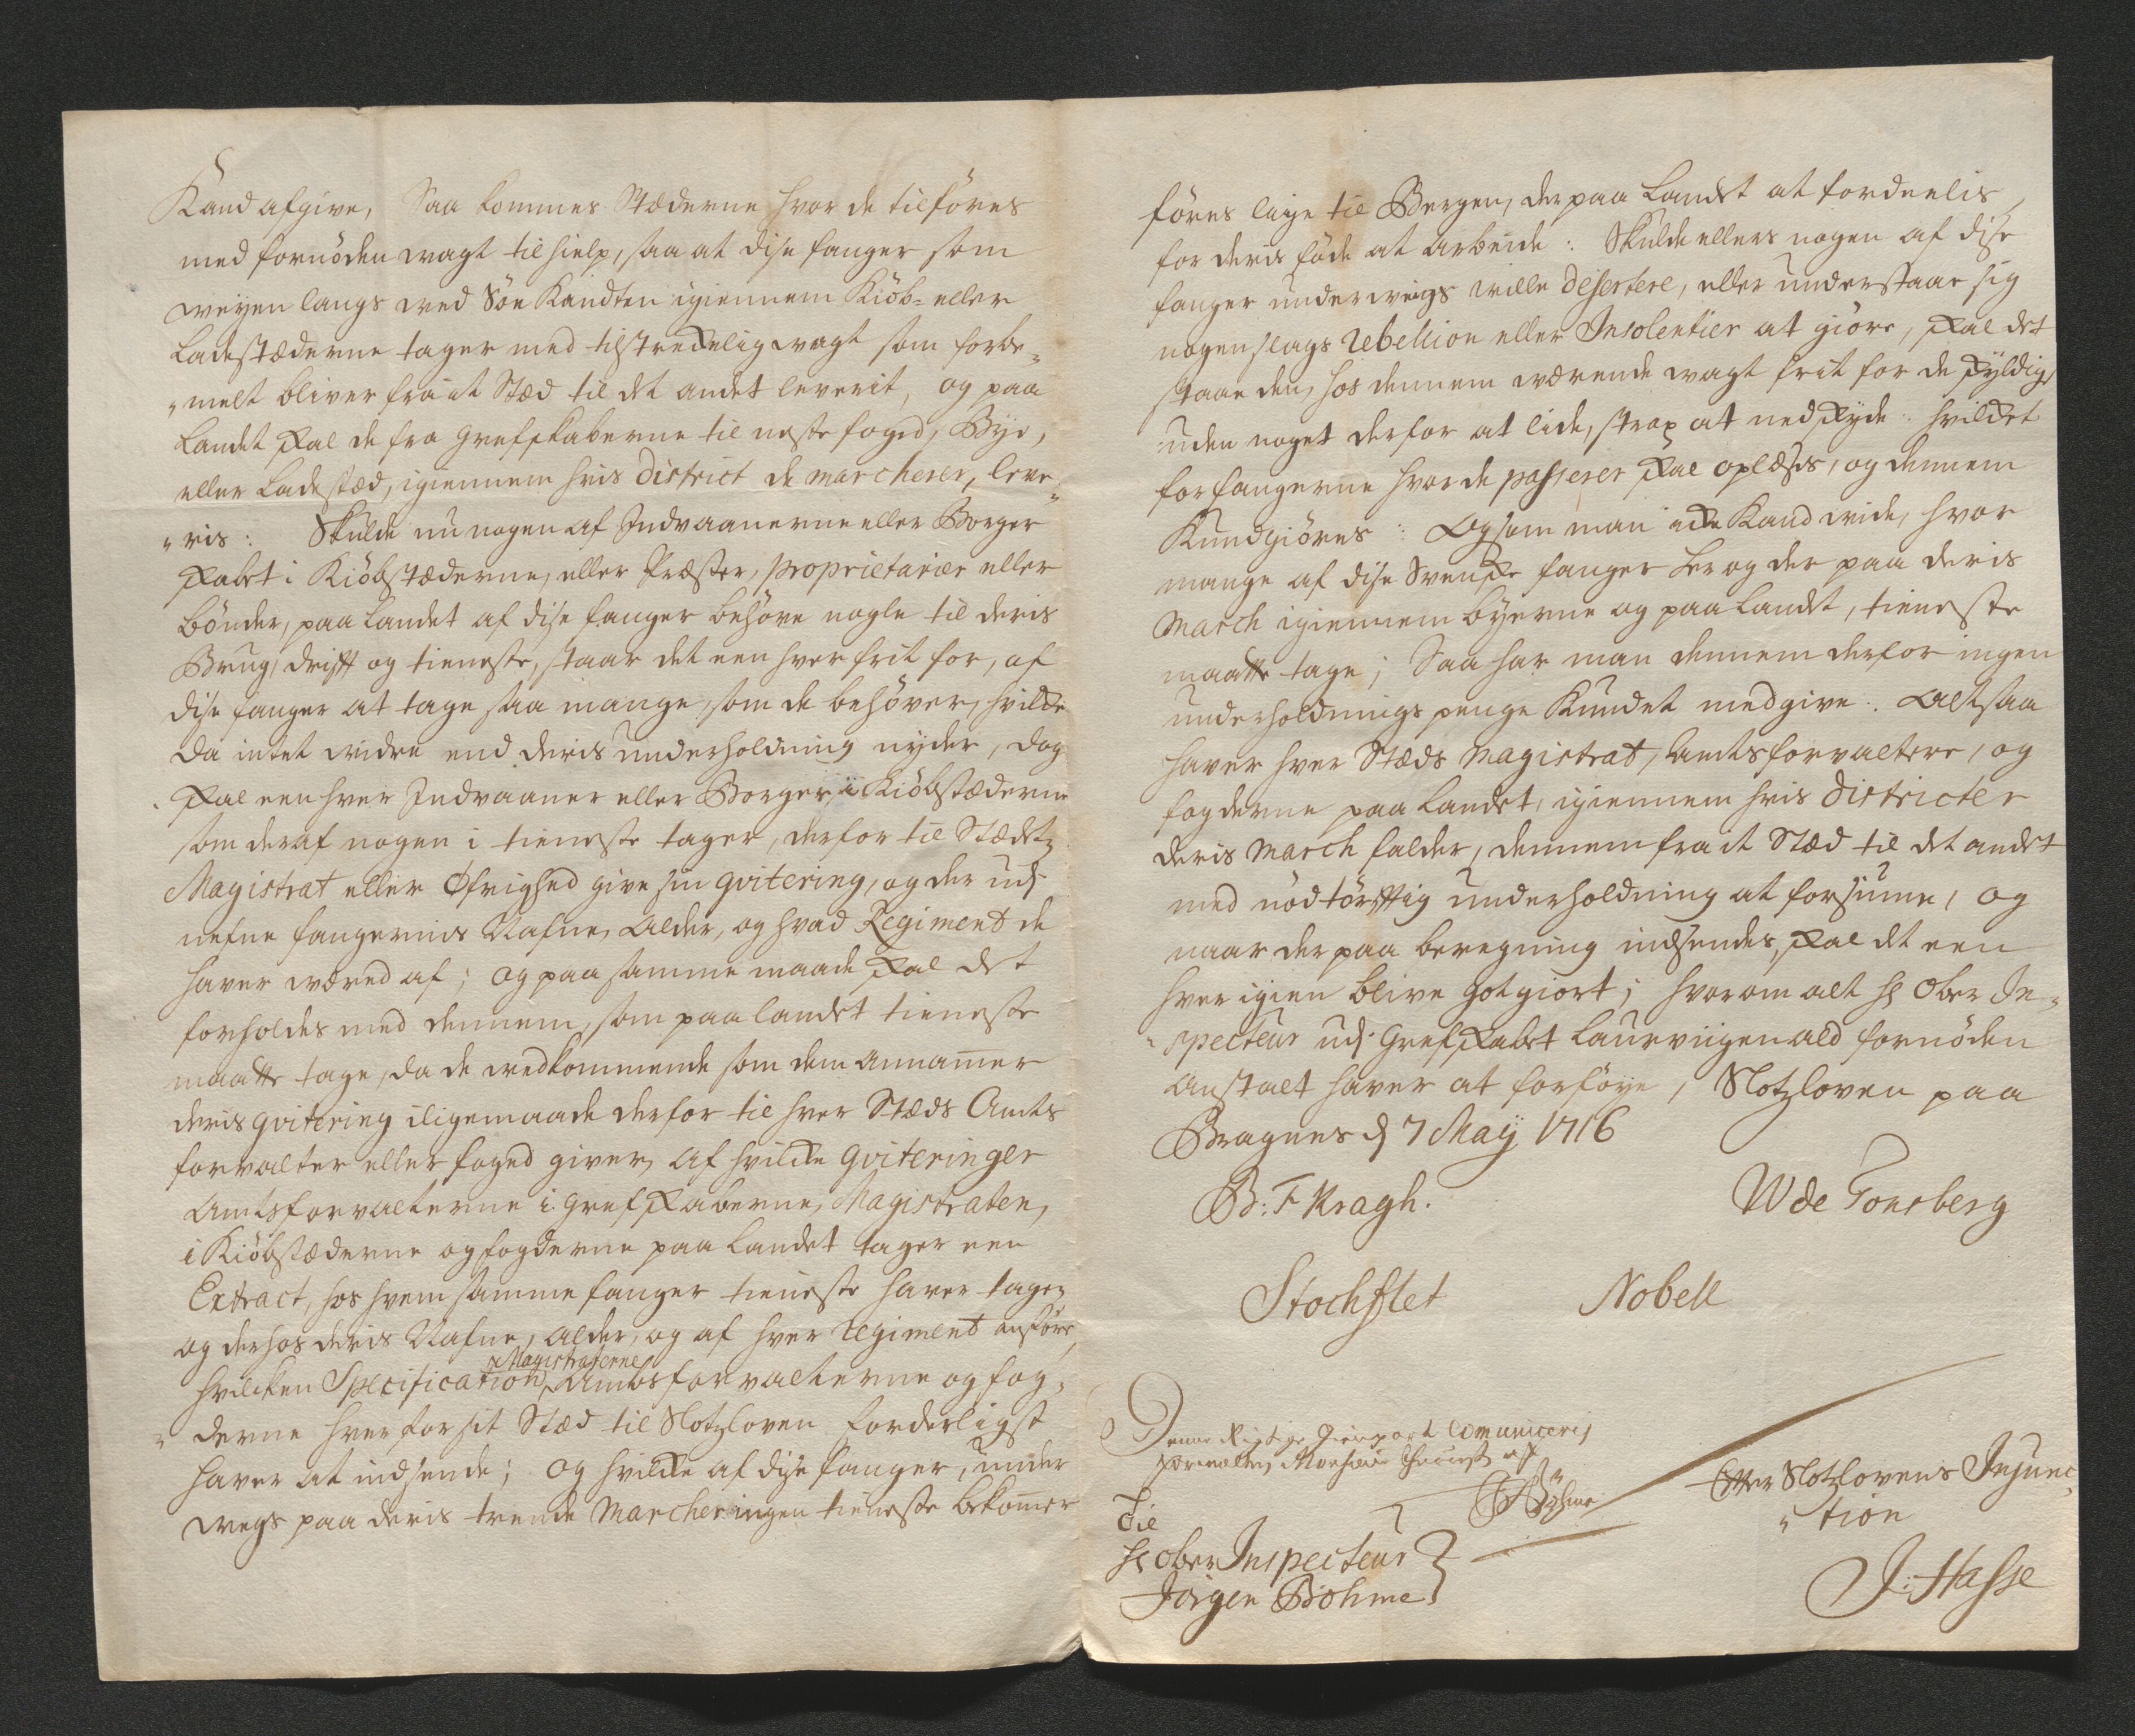 Kand afgive, Saa kommes Stæderne hvor de tilføres
med fornøden wagt til hielp, saa at dise fanger som
weyen langs wed Søe Kandten igiennem Kiöb- eller
Ladestæderne tager med tilstrekelig wagt som forbe-
melt bliver fra it Stæd til det andet leverit, og paa
Landet skal de fra Grefskaberne til neste foged, Bye,
eller Ladestæd, igiennem hvis District de marcherer, leve-
ris: Skulde nu nogen af Indvaanerne eller Borger
skabet i Kiöbstæderne, eller Præster, proprietarier eller
bönder, paa Landet af dise fanger behöve nogle til deris
Brug, drifft og tieneste, staar det een hver frit for, af
dise fanger at tage saa mange, som de behöver, hvilke
da intet widre end deris underholdning nyder, dog
skal een hver Indvaaner eller Borger i Kiöbstæderne
som deraf nogen i tieneste tager, derfor til Stædetz
Magistrat eller Øfrighed give sin qvitering, og der udj
nefne fangernis Nafne, Alder, og hvad Regiment de
haver wæred af; og paa samme maade skal det
forholdes med dennem, som paa landet tieneste
maatte tage, da de wedkommende som dem annammer
deris qvitering iligemaade derfor til hver Stæds Amts
forvalter eller foged giver, af hvilke Qviteringer
Amtsforvalterne i Grefskaberne, Magistraten,
i Kiöbstæderne og fogderne paa Landet tager een
Extract, hos hvem samme fanger tieneste haver tagen
og derhos deris Nafne, alder, og af hver Regiment anføre,
Magistraterne
hvilcken Specification, Amtsforvalterne og fog-
derne hver for sit Stæd til Slotzloven forderligst
haver at indsende; og hvilke af dise fanger, under
wegs paa deris trende Marcher ingen tieneste bekommer
föres lige til Bergen, der paa Landet at fordeelis,
for deris föde at arbeide: Skulde ellers nogen af dise
fanger underweigs wille desertere, eller understaar sig
nogen slags Rebellion eller Insolentier at giöre, skal det
staae den, hos dennem wærende wagt frit for de skyldige
uden noget derfor at lide, strax at nedskyde: hvilket
for fangerne hvor de passerer skal oplæses, og dennem
Kundgiöres: Og som man icke Kand wide, hvor
mange af dise Svenske fanger her og der paa deris
March igiennem byerne og paa Landet, tieneste
maatte tage; Saa har man dennem derfor ingen
underholdnings penge Kundet medgive: Altsaa
haver hver Stæds Magistrat, Amtsforvaltere, og
fogderne paa Landet, igiennem hvis Districter
deris March falder, dennem fra it Stæd til det andet
med nödtörfftig underholdning at forsiune, og
naar der paa beregning indsendes, skal det een
hver igien blive gotgiort; hvorom alt Hr Ober In-
specteur udj Grefskabet Laurviigen ald fornöden
Anstalt haver at forföye, Slotzloven paa
Bragnes d 7 Maÿ 1716
B: F Kragh. W de Tonsberg
Stochflet Nobell
Denne Rigtige Gienpart Comuniceris
forvalter Monsieur af
Böhme
Efter Slotzlovens Injunc-
tion
J: Hasse
Til
Hr Ober Inspecteur
Jörgen Böhme